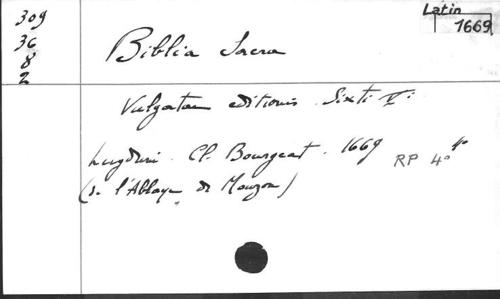 309
36
8
2
Latin
1669
Biblia Sacra
Vulgatae editionis Sixti V.
Lugduni. Cl. Bourgeat. 1669 RP 4°
(de l'Abbaye de Mouzon)